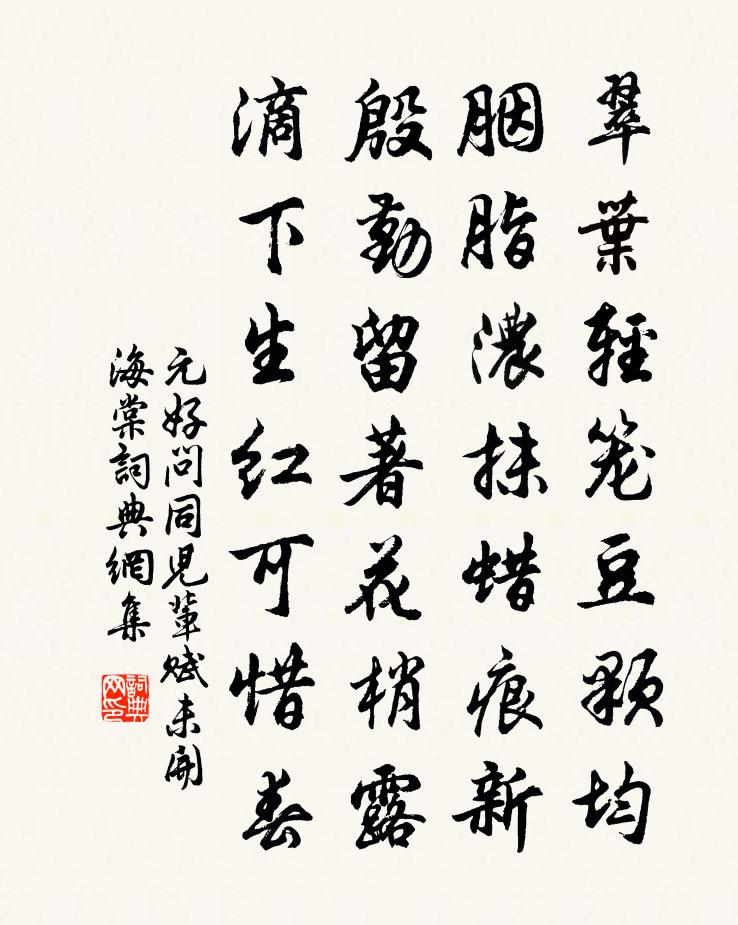 翠葉輕笼豆顆均
胭脂濃抹蜡痕新
殷勤留著花梢露
滴下生红可惜春
元好问同児輩賦未開
海棠詞典網集
詞典网印